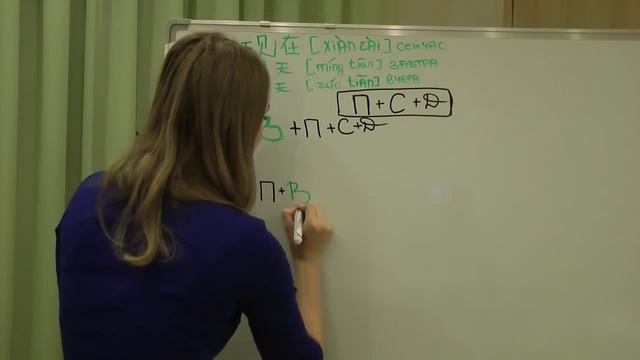 现在 [xiàn zài] сейчас
天 [míng tiān] завтра
天 [zuó tiān] вчера
П + С + Д
В + П + С + Д
П + В